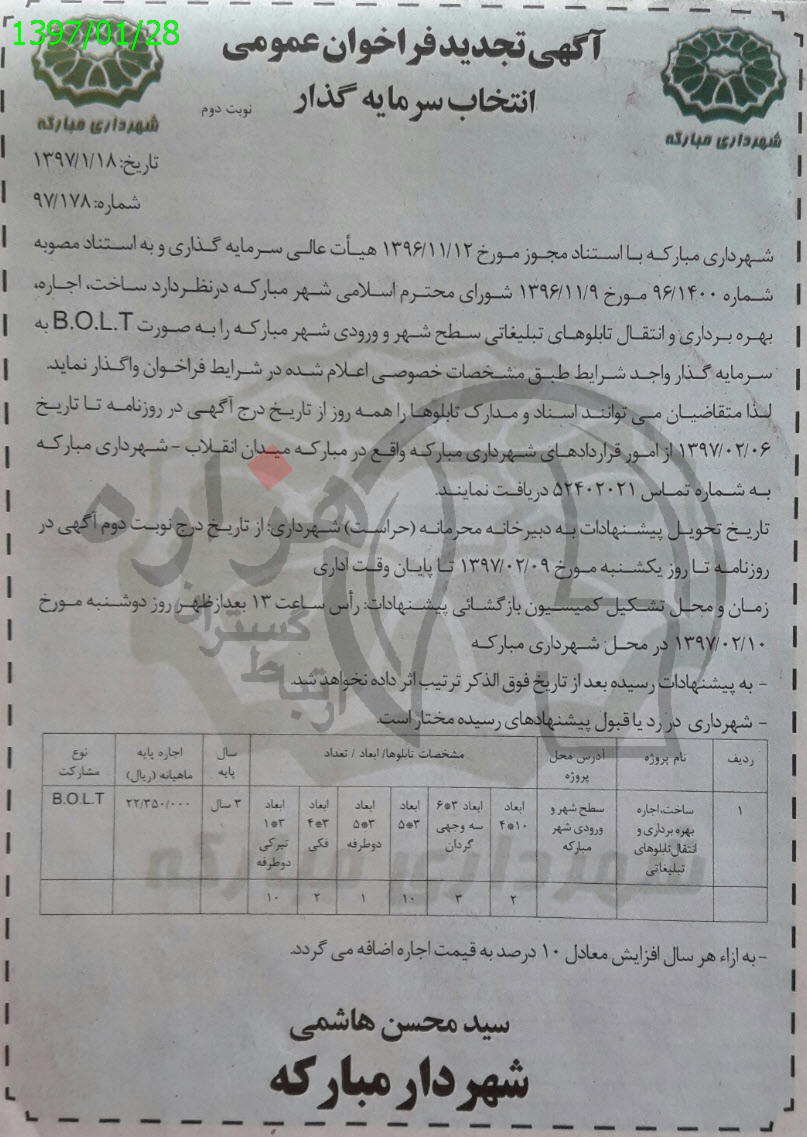 1397/01/28
آگهی تجدید فراخوان عمومی
انتخاب سرمایه گذار
نوبت دوم
شهرداری مبارکه
شهرداری مبارکه
تاریخ: ۱۳۹۷/۱/۱۸
شماره: ۹۷/۱۷۸
شهرداری مبارکه با استناد مجوز مورخ ۱۳۹۶/۱۱/۱۲ هیأت عالی سرمایه گذاری و به استناد مصوبه
شماره ۹۶/۱۴۰۰ مورخ ۱۳۹۶/۱۱/۹ شورای محترم اسلامی شهر مبارکه درنظردارد ساخت، اجاره،
بهره برداری و انتقال تابلوهای تبلیغاتی سطح شهر و ورودی شهر مبارکه را به صورت B.O.L.T به
سرمایه گذار واجد شرایط طبق مشخصات خصوصی اعلام شده در شرایط فراخوان واگذار نماید.
لذا متقاضیان می توانند اسناد و مدارک تابلوها را همه روز از تاریخ درج آگهی در روزنامه تا تاریخ
۱۳۹۷/۰۲/۰۶ از امور قراردادهای شهرداری مبارکه واقع در مبارکه میدان انقلاب - شهرداری مبارکه
به شماره تماس ۵۲۴۰۲۰۲۱ دریافت نمایند.
تاریخ تحویل پیشنهادات به دبیرخانه محرمانه (حراست) شهرداری: از تاریخ درج نوبت دوم آگهی در
روزنامه تا روز یکشنبه مورخ ۱۳۹۷/۰۲/۰۹ تا پایان وقت اداری
زمان و محل تشکیل کمیسیون بازگشائی پیشنهادات: رأس ساعت ۱۳ بعدازظهر روز دوشنبه مورخ
۱۳۹۷/۰۲/۱۰ در محل شهرداری مبارکه
- به پیشنهادات رسیده بعد از تاریخ فوق الذکر ترتیب اثر داده نخواهد شد.
- شهرداری در رد یا قبول پیشنهادهای رسیده مختار است.
ردیف نام پروژه آدرس محل پروژه مشخصات تابلوها/ ابعاد / تعداد سال پایه اجاره پایه ماهیانه (ریال) نوع مشارکت
۱ ساخت، اجاره بهره برداری و انتقال تابلوهای تبلیغاتی سطح شهر و ورودی شهر مبارکه ابعاد ۱۰*۴ ابعاد ۳*۶ سه وجهی گردان ابعاد ۳*۵ ابعاد ۳*۵ دوطرفه ابعاد ۳*۴ فکی ابعاد ۳*۱ تیرکی دوطرفه ۳ سال ۲۲/۳۵۰/۰۰۰ B.O.L.T
۲ ۳ ۱۰ ۱ ۲ ۱۰
- به ازاء هر سال افزایش معادل ۱۰ درصد به قیمت اجاره اضافه می گردد.
سید محسن هاشمی
شهردار مبارکه
هزاره
گستران
ارتباط
شهرداری مبارکه